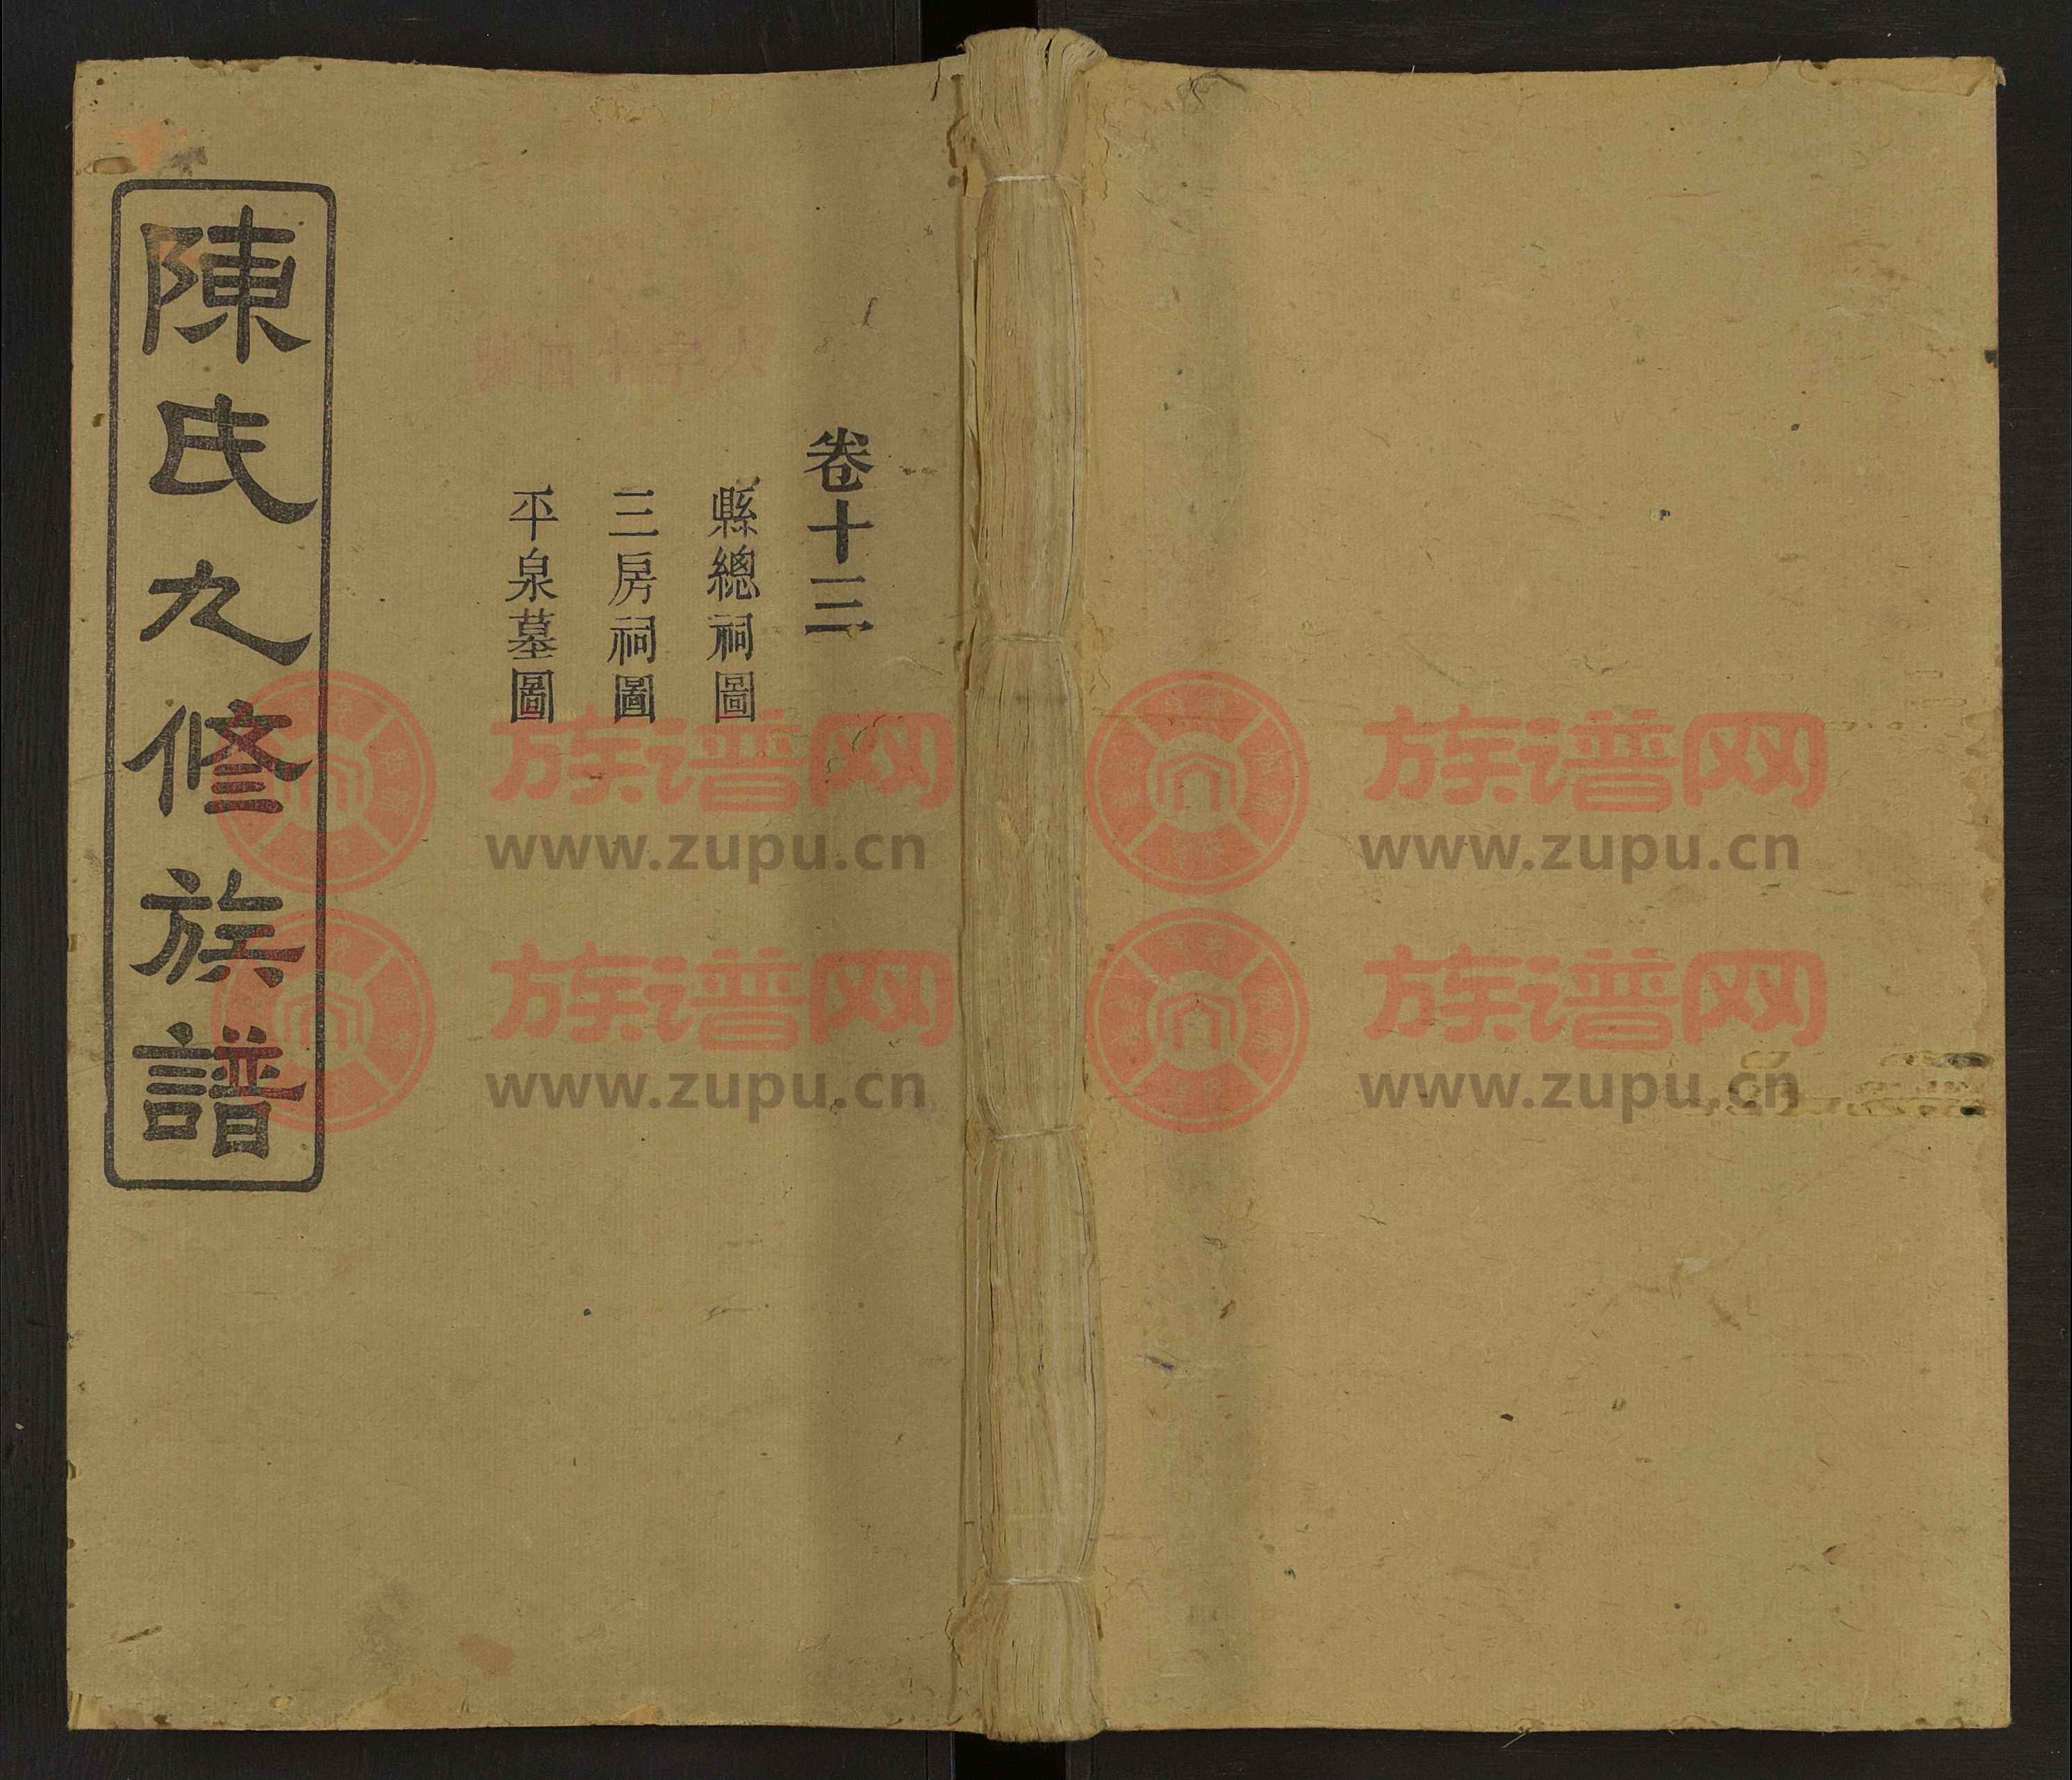 卷十三
縣總祠圖
三房祠圖
平泉墓圖
陳氏九修族譜
人字十四號
族谱网
www.zupu.cn
族谱网
www.zupu.cn
族谱网
www.zupu.cn
族谱网
www.zupu.cn